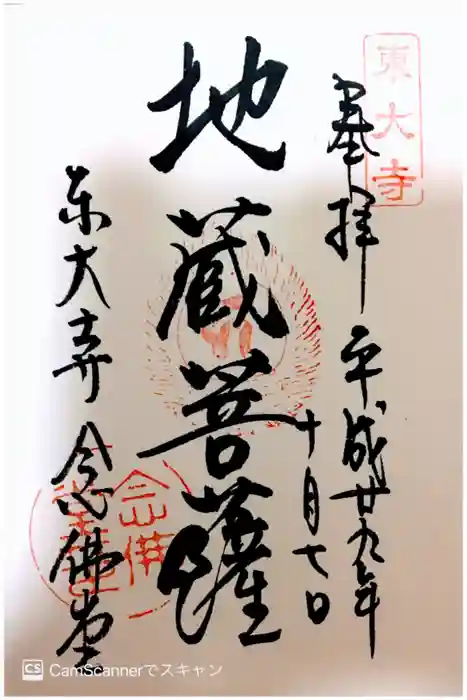 東大寺
奉拝
平成廿九年
十月七日
地蔵菩薩
東大寺念佛堂
念佛
CS CamScannerでスキャン